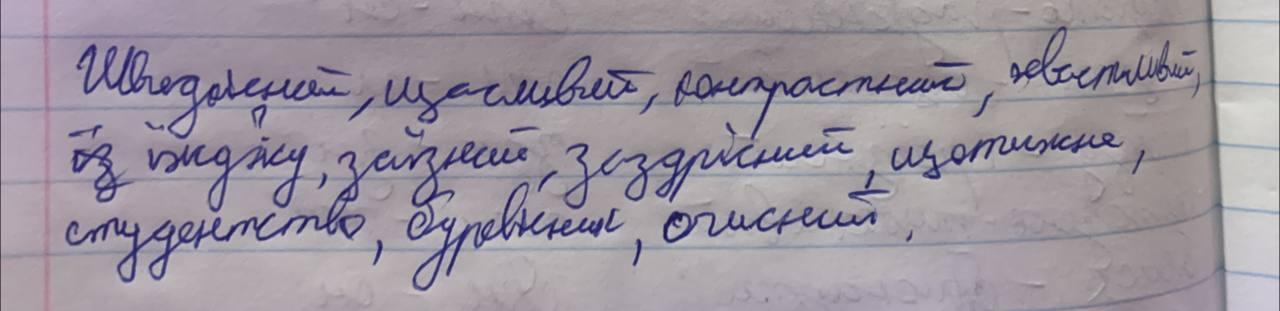 Швидкісний, щасливий, контрастний, хвастливий,
їжджу, заїзний, заздрісний, щотижня,
студентство, буревісник, очисний,